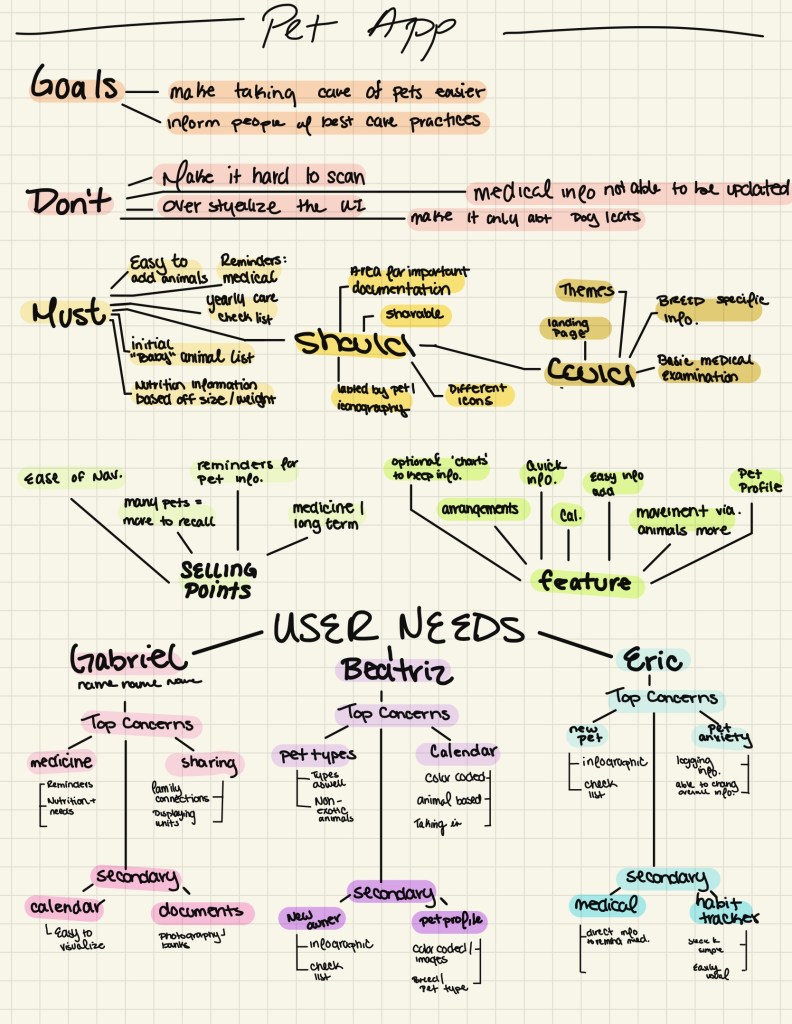 Pet App
Goals
make taking care of pets easier
inform people of best care practices
Don't
Make it hard to scan
medical info not able to be updated
over styealize the UI
make it only abt Dog/cats
Must
Easy to
add animals
Reminders:
medical
yearly care
check list
initial
"Baby" animal list
Nutrition information
based off size/weight
Should
Area for important
documentation
sharable
labled by pet/
iconography
Different
icons
Could
Themes
landing
page
BREED specific
info.
Basic medical
examination
SELLING
Points
Ease of Nav.
many pets =
more to recall
reminders for
pet info.
medicine /
long term
feature
optional 'charts'
to keep info.
arrangements
Quick
info.
Cal.
Easy info
add
movement via.
animals more
Pet
Profile
USER NEEDS
Gabriel
name name name
Top Concerns
medicine
Reminders
Nutrition +
needs
sharing
family
connections
Displaying
units
secondary
calendar
Easy to
visualize
documents
Photography
banks
Beatriz
Top Concerns
pet types
Types
as well
Non-
exotic
animals
Calendar
color coded
animal based
Taking it
secondary
New
owner
infographic
check
list
pet profile
Color coded/
images
Breed/
Pet type
Eric
Top Concerns
new
pet
infographic
check
list
Pet
anxiety
logging
info.
able to chang
overall info.
secondary
medical
direct info
to remind med.
habit
tracker
simple
Easily
usual